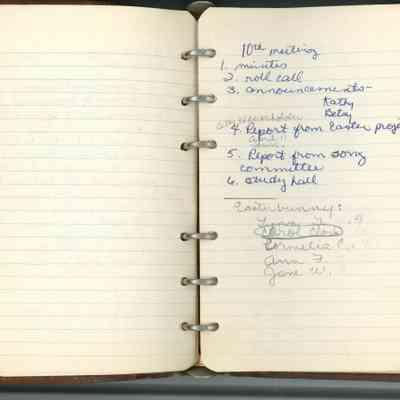 10th meeting
1. minutes
2. roll call
3. announcements-
Kathy
Betsy
4. Report from Easter proje
April 11
5. Report from song
committee
6. study hall
Easter bunny:
Carol
Cornelia C.
Ann F.
Jane W.